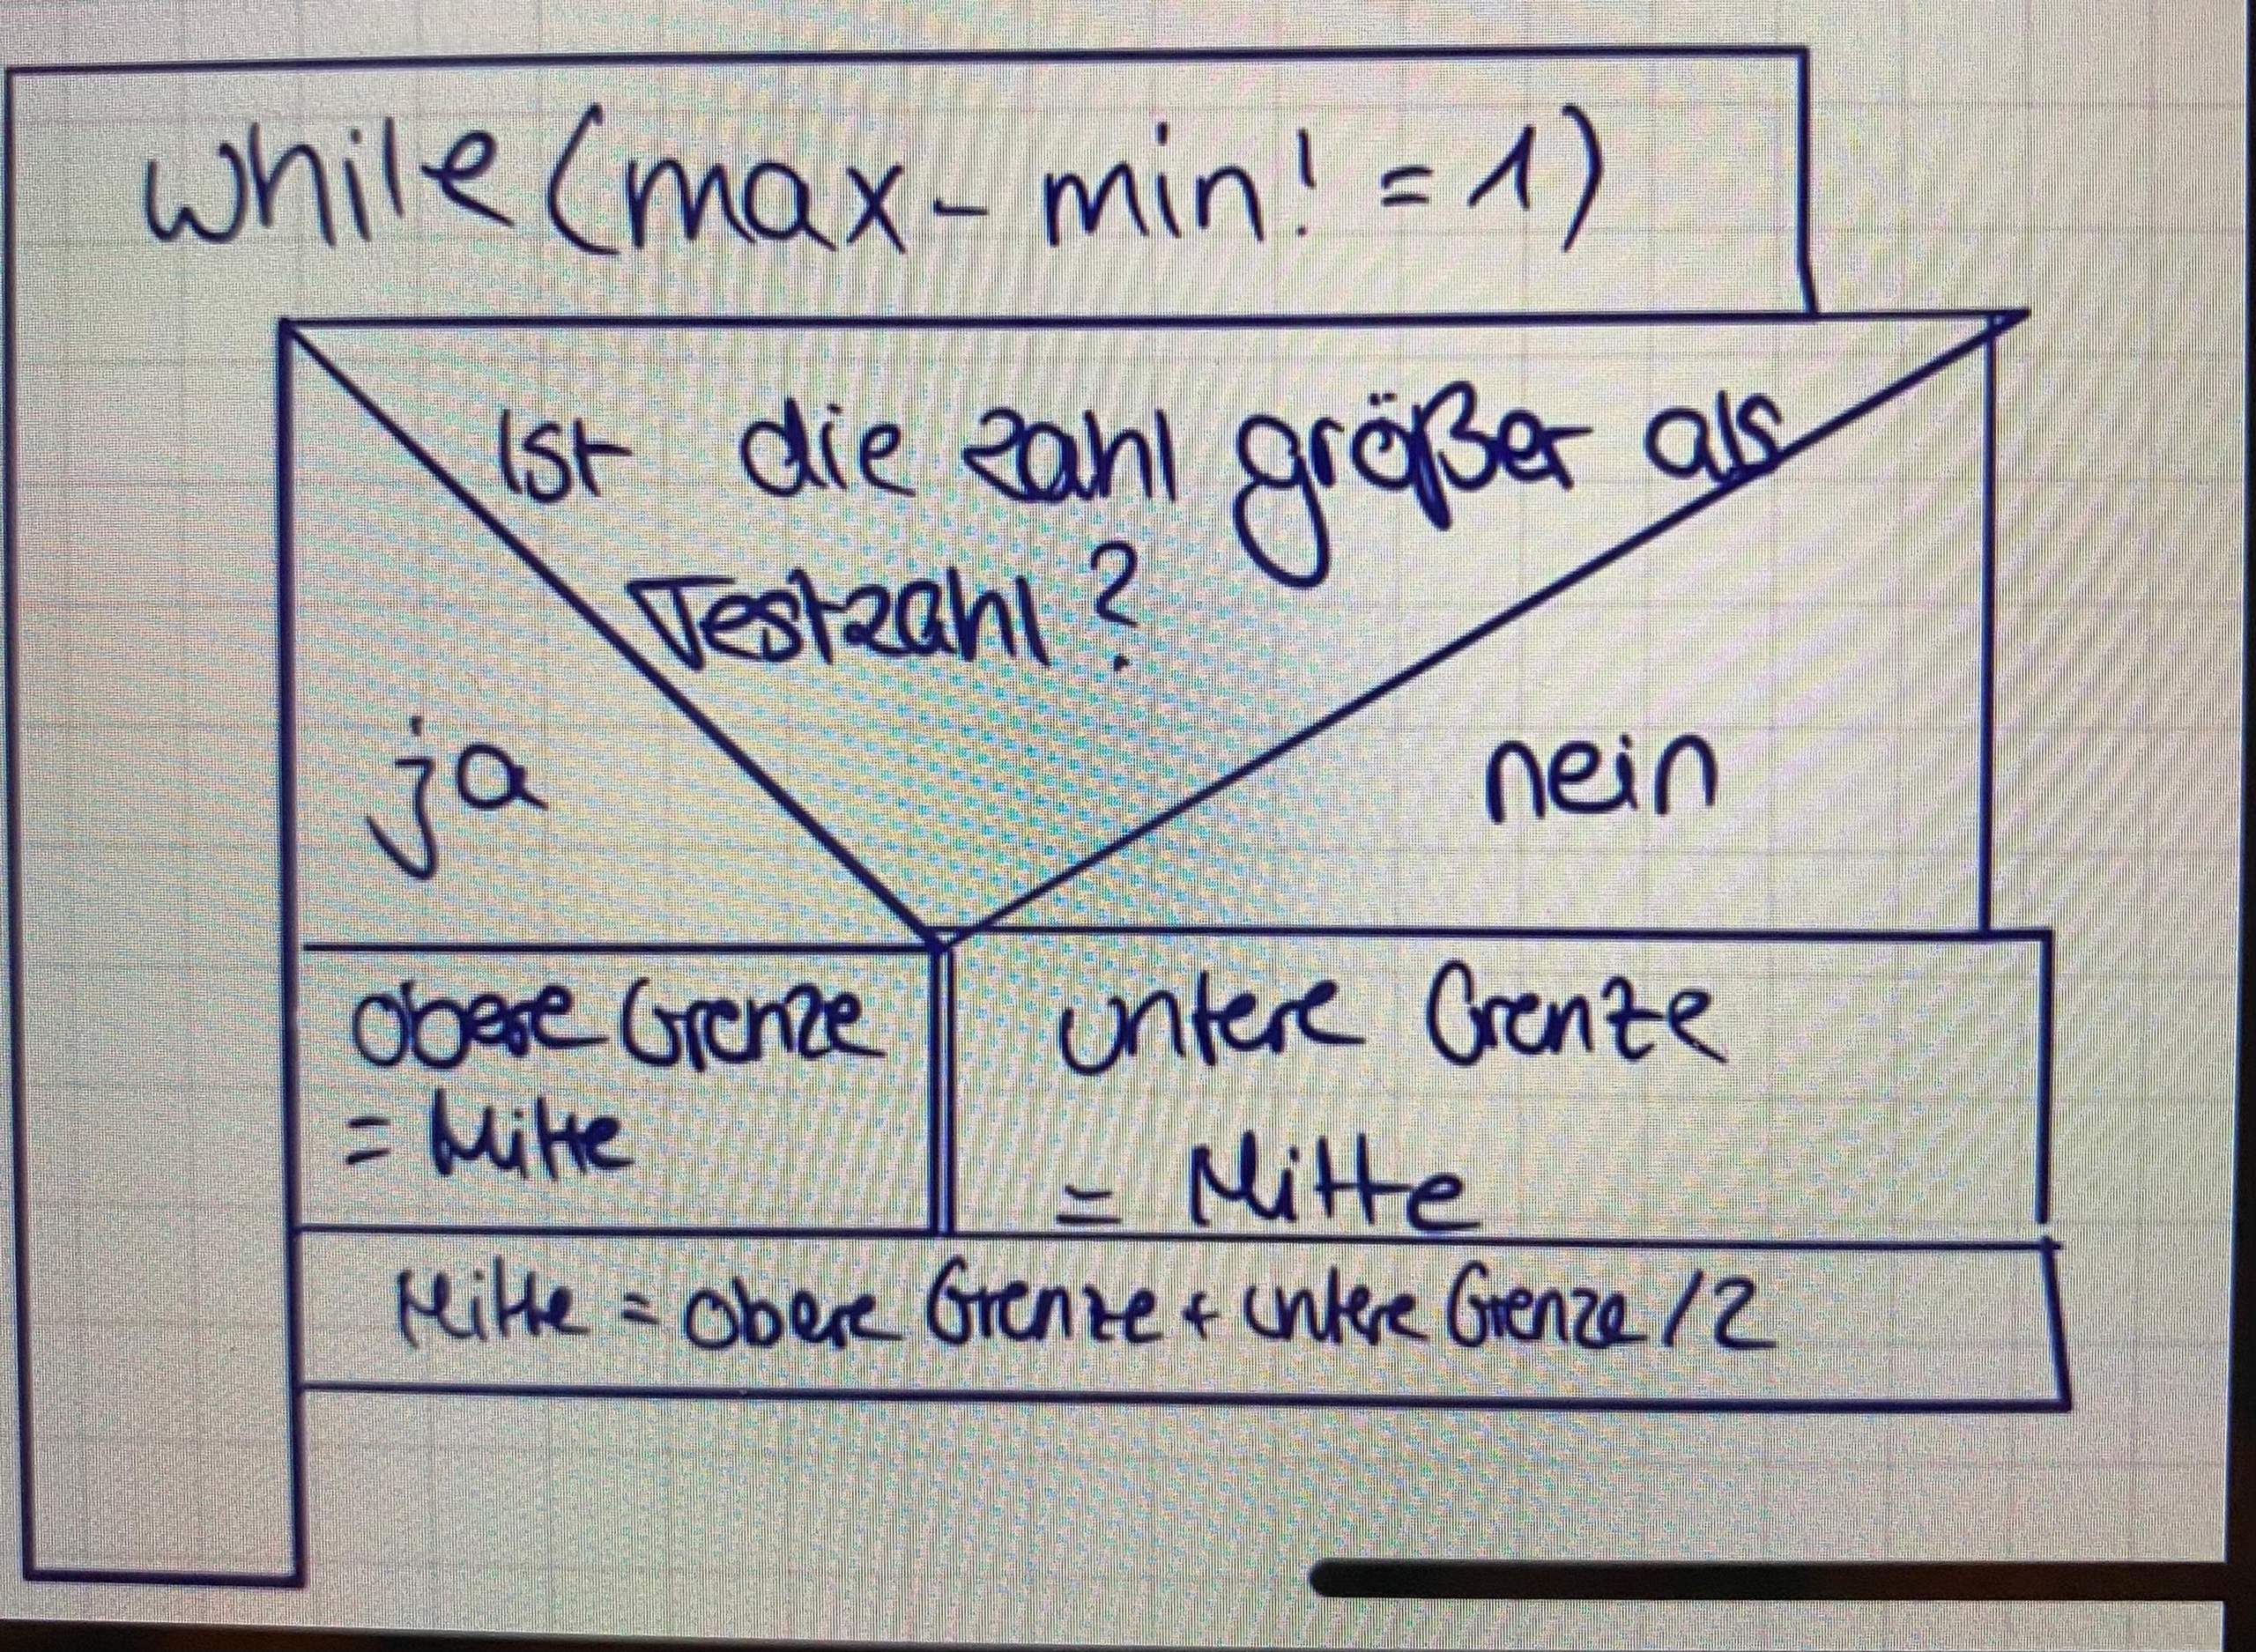 while (max - min! = 1)
Ist die Zahl größer als
Testzahl?
ja
nein
obere Grenze
= Mitte
untere Grenze
= Mitte
Mitte = obere Grenze + untere Grenze / 2